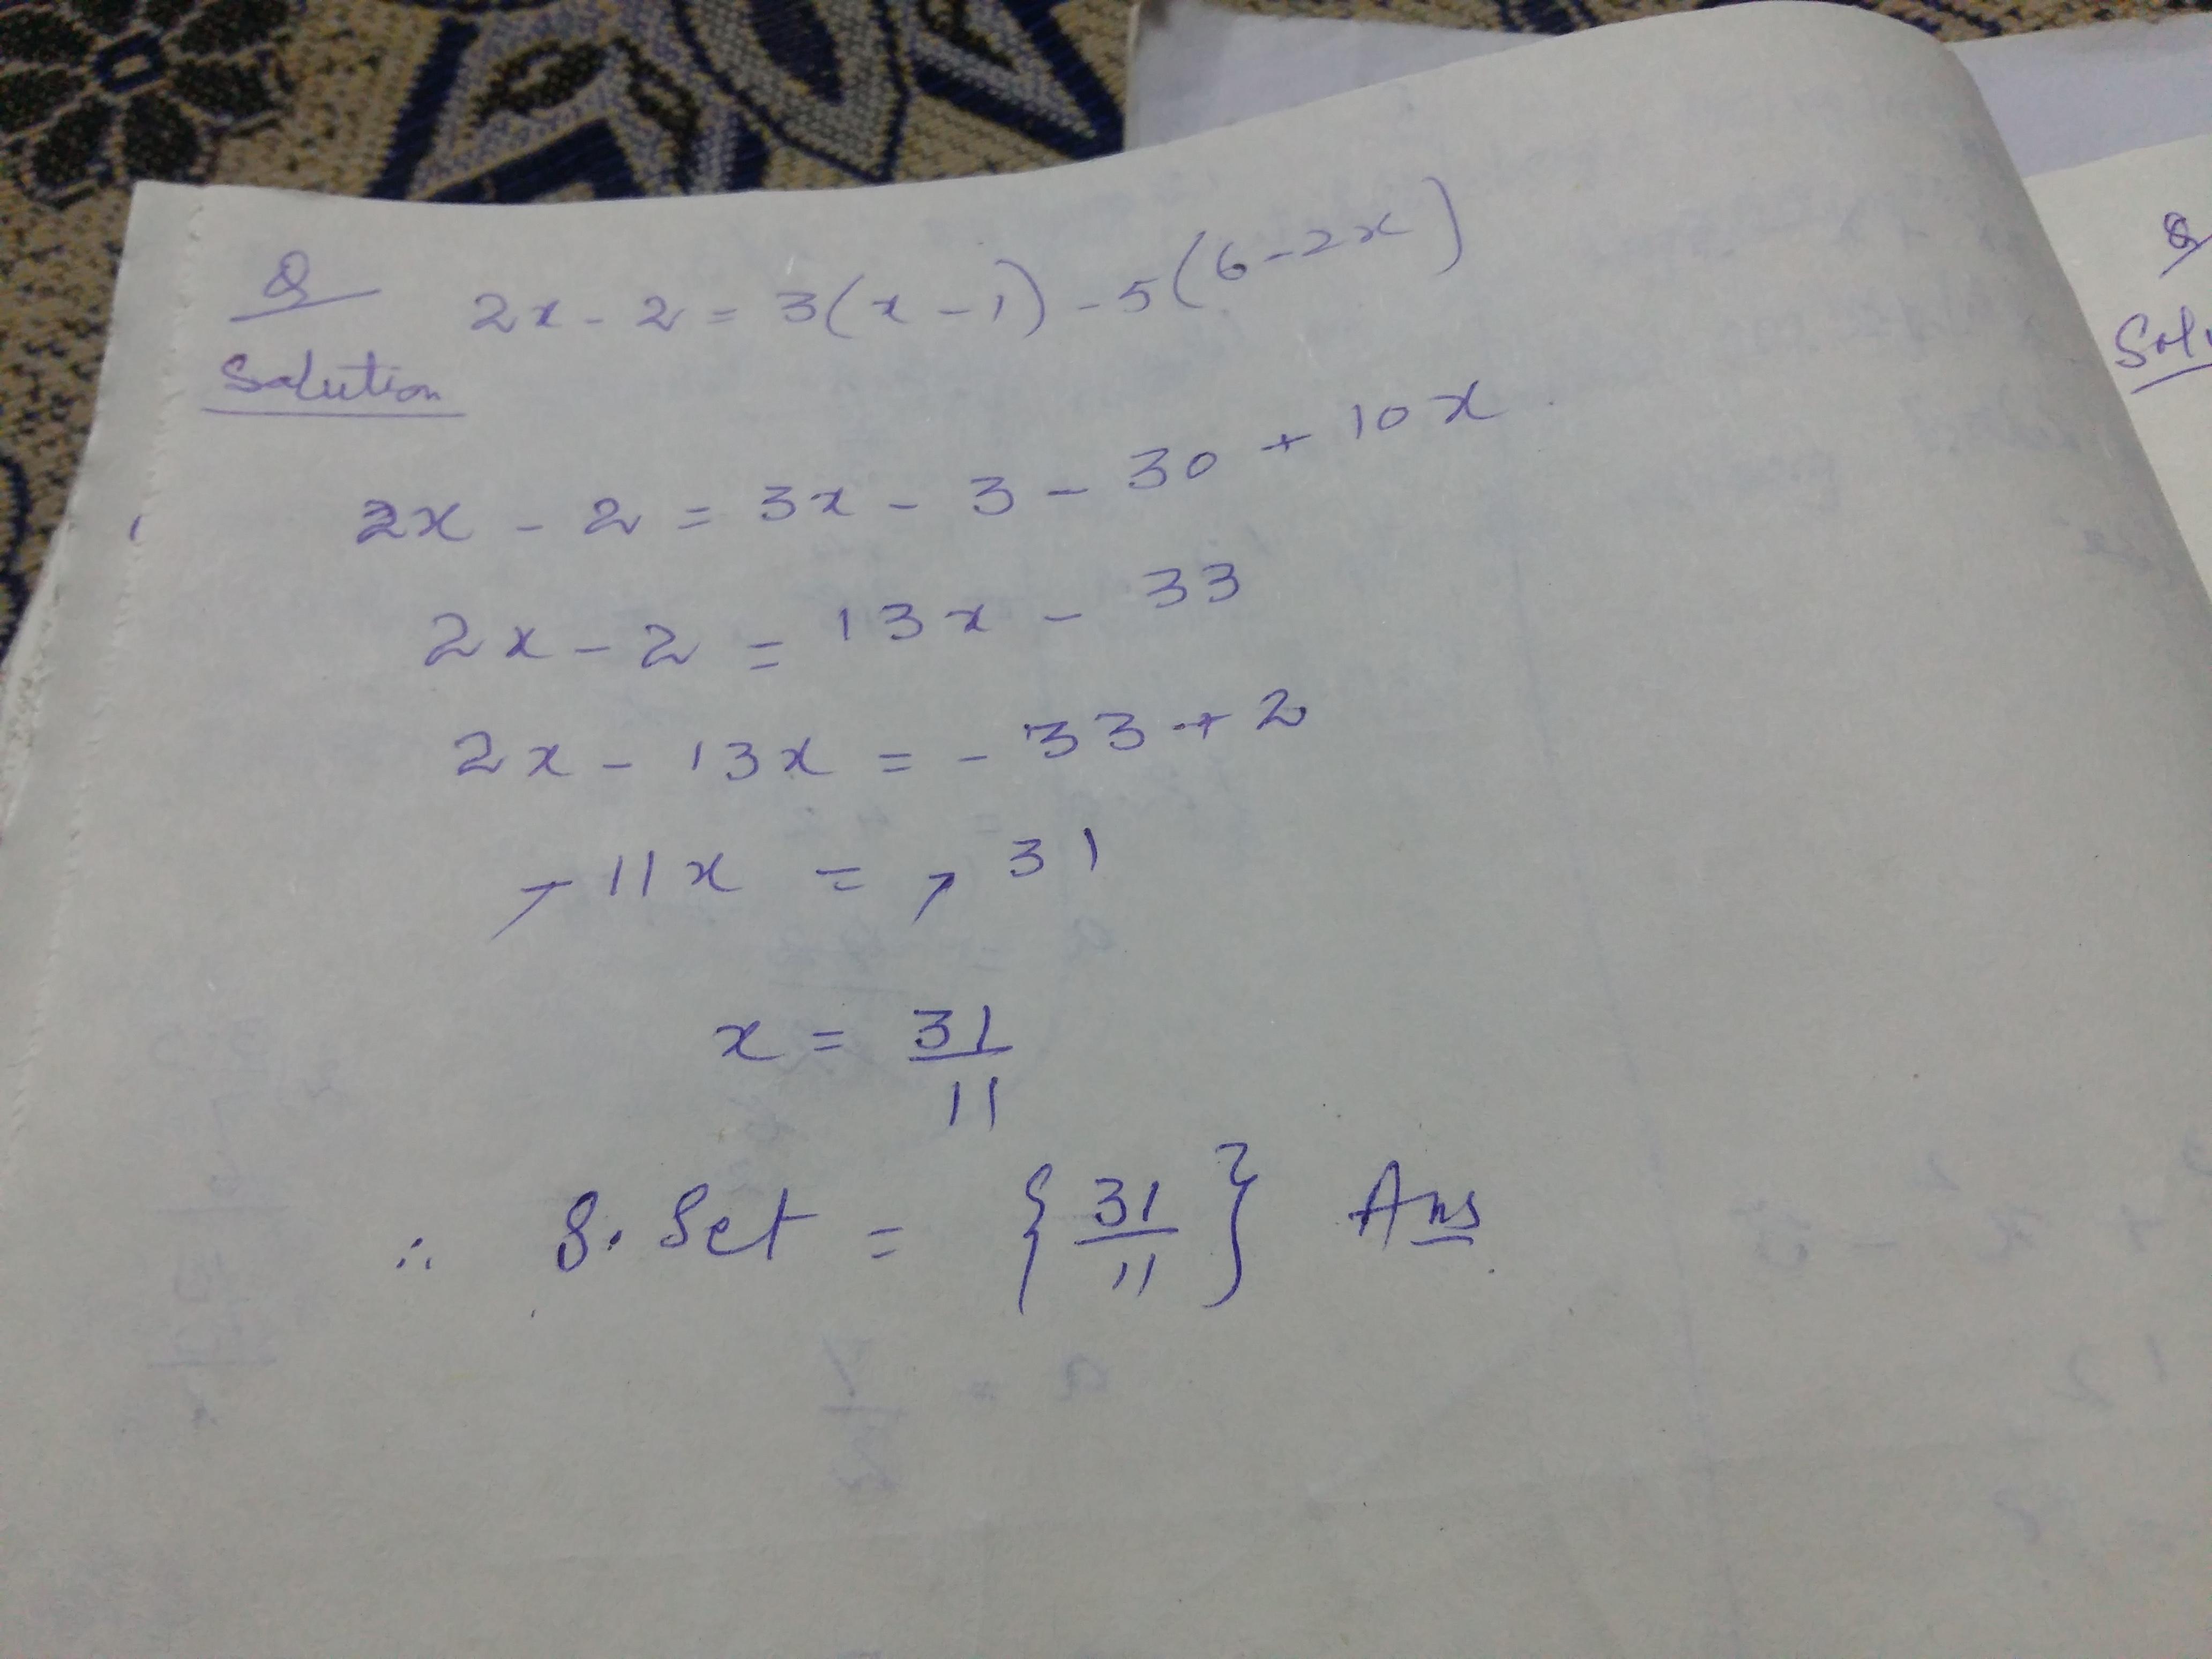 Q 2x - 2 = 3(x - 1) - 5(6 - 2x)
Solution
2x - 2 = 3x - 3 - 30 + 10x
2x - 2 = 13x - 33
2x - 13x = - 33 + 2
- 11x = - 31
x = 31/11
∴ S. Set = {31/11} Ans
Q
Solu